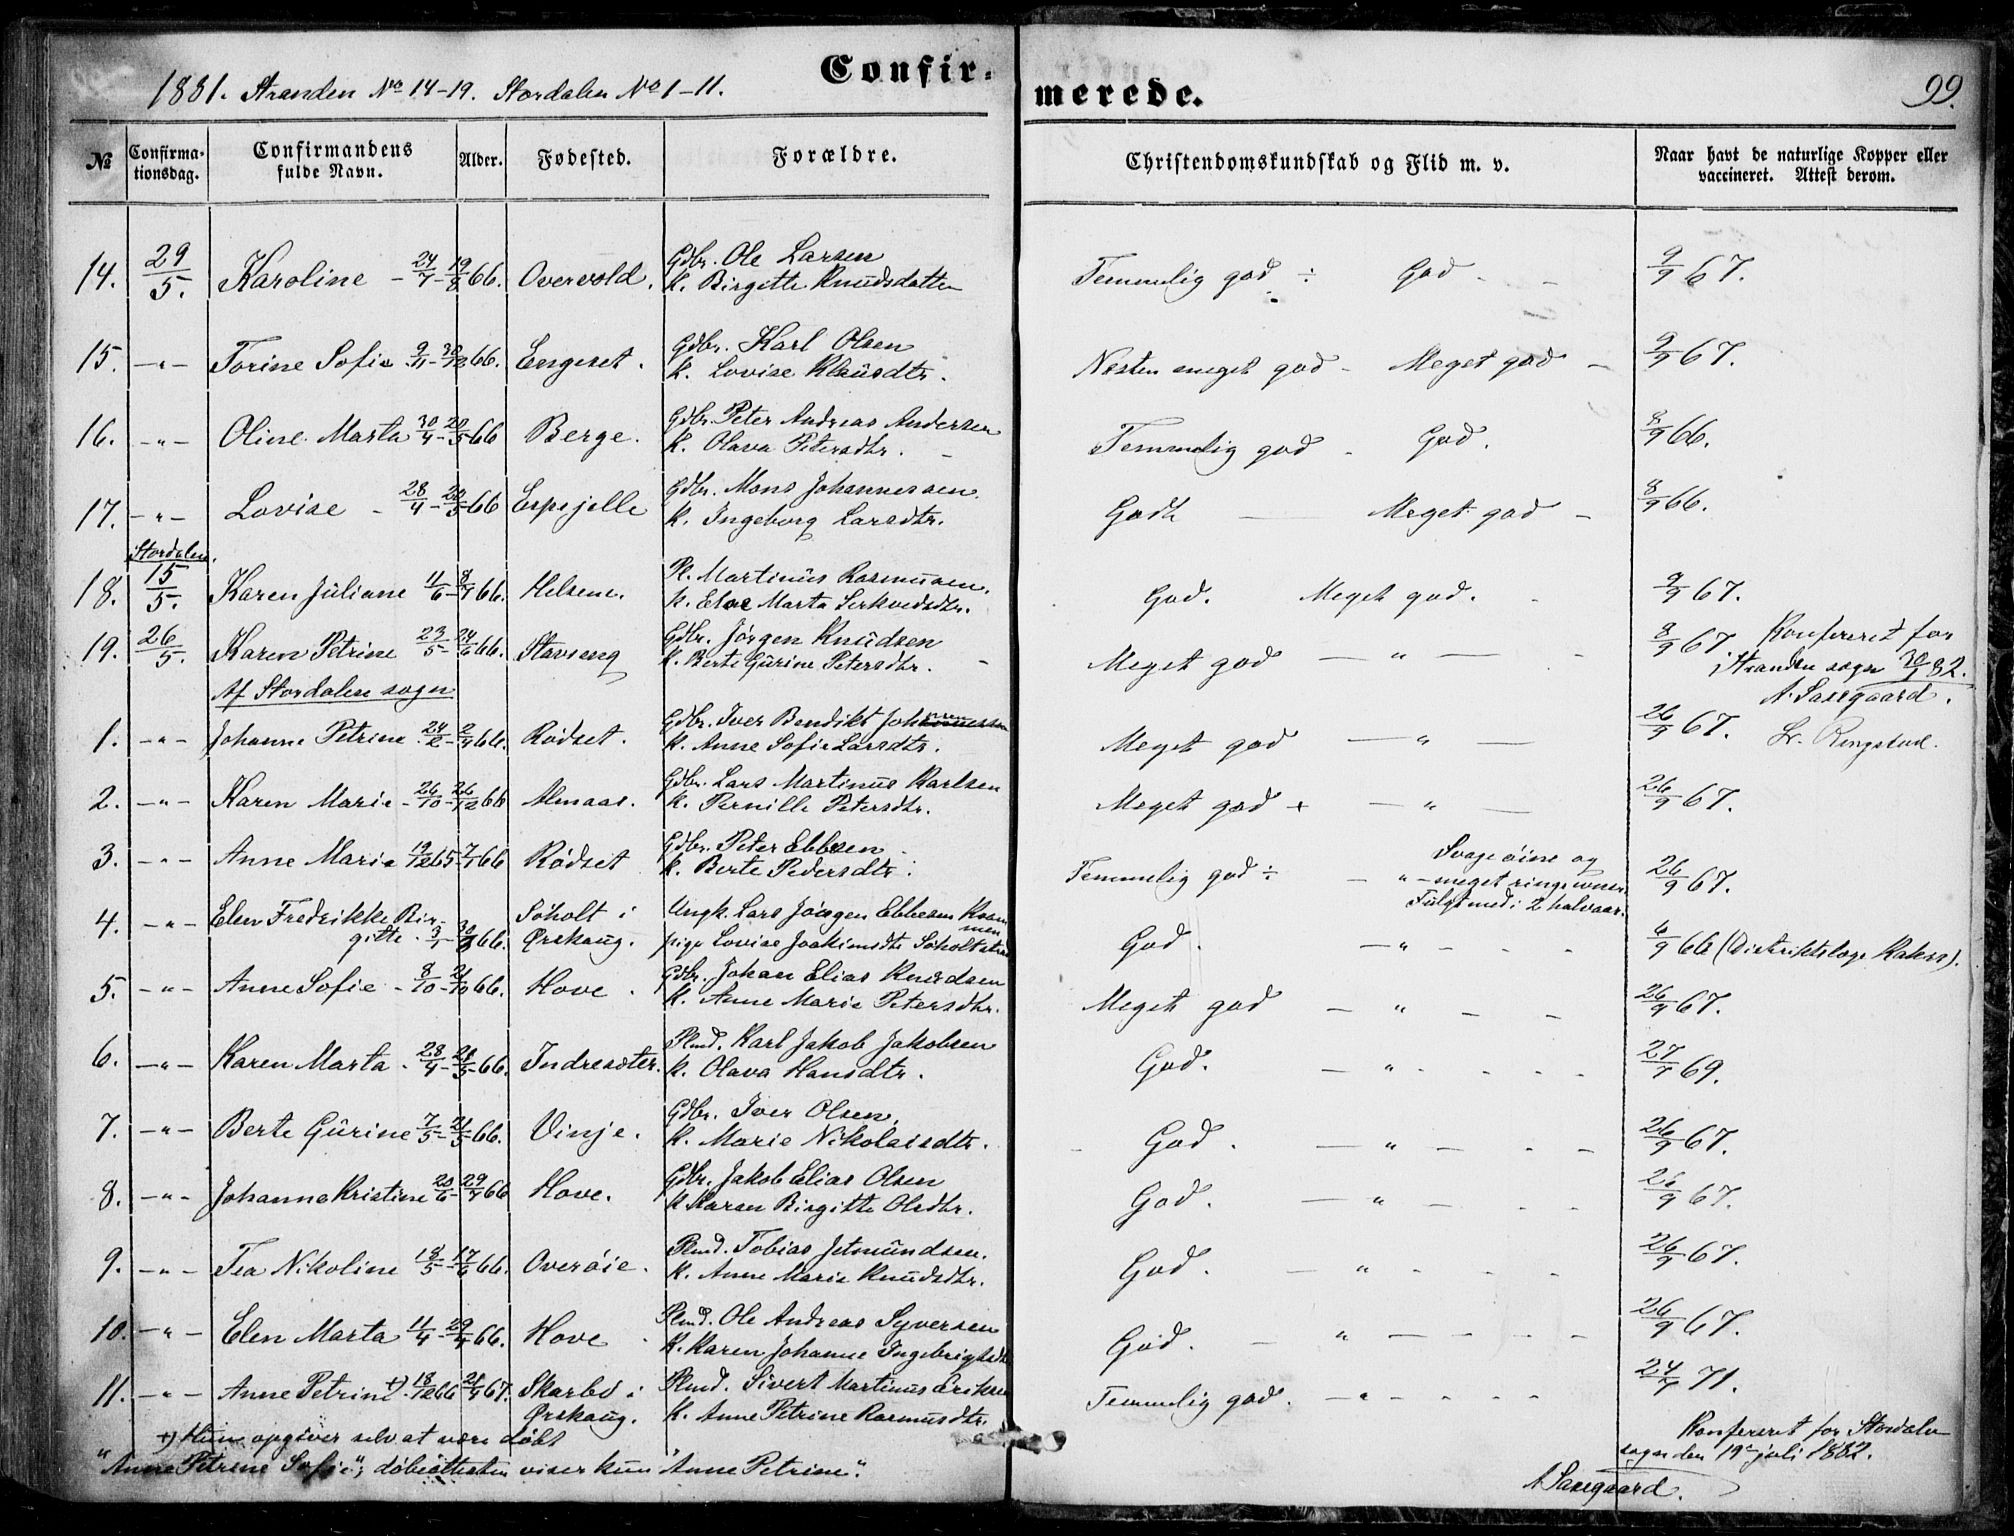 1881. Stranden No 14-19. Stordalen No 1-11.
Confir-
merede.
99.
No
Confirma-
tionsdag.
Confirmandens
fulde Navn.
Alder.
Fødested.
Forældre.
Christendomskundskab og Flid m. v.
Naar havt de naturlige Kopper eller
vaccineret. Attest derom.
14. 29/5. Karoline - 24/7 - 19/8 66. Overvold. Gdbr. Ole Larsen
K. Birgitte Knudsdatter
Temmelig god ÷ God - - 9/9 67.
15. -"- Torine Sofie 9/11 - 30/12 66. Engeset. Gdbr. Karl Olsen
K. Lovise Klausdtr.
Næsten meget god - Meget god - 9/9 67.
16. -"- Oline Marta 30/4 - 20/5 66 Berge. Gdbr. Peter Andreas Andersen
K. Olava Petersdtr. -
Temmelig god - God. 8/9 66.
17. -"- Lovise - 28/4 - 20/5 66 Espejelle Gdbr. Mons Johannesen
K. Ingeborg Larsdtr.
Godt - Meget god - 8/9 66.
Stordalen.
18. 15/5. Karen Juliane 11/6 - 8/7 66. Helsem. Pl. Martinus Rasmusen.
K. Else Marta Serkvedsdtr.
God. Meget god. - 9/9 67.
19. 26/5. Karen Petrine 23/5 - 24/6 66. Stavseng Gdbr. Jörgen Knudsen
K. Berte Gurine Petersdtr. -
Meget god - " - - 8/9 67. Konfereret for
Stranden sogn 30/1 82.
A. Saxegaard.
Lr. Ringstad.
Af Stordalen sogn
1. -"- Johanne Petrine 24/2 - 2/4 66. Rödset. Gdbr. Iver Bendikt Johannessen
K. Anne Sofie Larsdtr.
Meget god - " - 26/9 67.
2. -"- Karen Marie - 26/10 - 26/12 66 Almaas. Gdbr. Lars Martinus Karlsen
K. Pernille Petersdtr.
Meget god + - " - 26/9 67.
3. -"- Anne Marie 19/12 65 - 7/1 66 Rödset Gdbr. Peter Ebbesen -
K. Berte Pedersdtr.
Temmelig god ÷ - " - Svage öine og
meget ringe evner.
Fulgt med i 2 halvaar.
26/9 67.
4. -"- Elen Fredrikke Bir-
gitte. 3/1 - 30/3 66. Söholt i
Ørskaug. Ungk. Lars Jörgen Ebbesen Kram
men
pige Lovise Joakimsdtr Söholtstrand
God. - " - - - 6/9 66 (Distriktslæge Kahrs).
5. -"- Anne Sofie - 8/10 - 21/10 66. Hove. Gdbr. Johan Elias Knudsen
K. Anne Marie Petersdtr.
Meget god - " - - 26/9 67.
6. -"- Karen Marta - 28/4 - 21/5 66. Indresæter. Plmd. Karl Jakob Jakobsen
K. Olava Hansdtr.
God. - " - - - - 27/7 69.
7. -"- Berte Gurine 7/5 - 21/5 66. Vinje. Gdbr. Iver Olsen.
K. Marie Nikolaisdtr.
God. - " - - - 26/9 67.
8. -"- Johanne Kristine 20/6 - 29/7 66 Hove. Gdbr. Jakob Elias Olsen
K. Karen Birgitte Olsdtr.
God. - " - - - 26/9 67.
9. -"- Tea Nikoline 18/5 - 17/6 66. Overöie. Plmd. Tobias Jetmundsen.
K. Anne Marie Knudsdtr.
God. - " - - - 26/9 67.
10. -"- Elen Marta 11/4 - 29/4 66. Hove. Plmd. Ole Andreas Syversen
K. Karen Johanne Ingebrigtsdtr
God. - " - - - - 26/9 67.
11. -"- Anne Petrine +) 18/12 66 21/4 67. Skarbö i
Ørskaug. Plmd. Sivert Martinus Eriksen
K. Anne Petrine Rasmusdtr.
Temmelig god. - " - - - - 24/7 71.
+) Hun opgiver selv at være döbt
"Anne Petrine Sofie"; döbeattesten viser kun "Anne Petrine".
Konfereret for Stordalen
sogn den 19de juli 1882.
A Saxegaard.